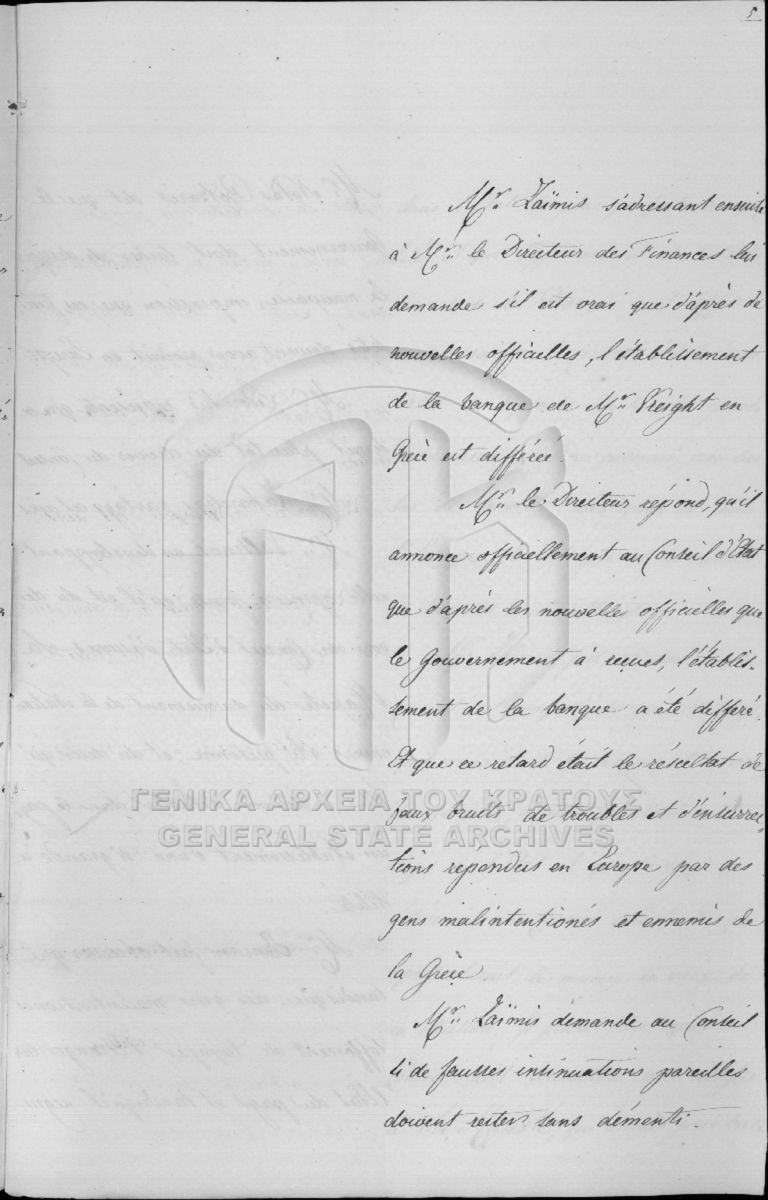 5
Mr. Zaïmis s'adressant ensuite
à Mr. le Directeur des Finances lui
demande s'il est vrai que d'après de
nouvelles officielles, l'établissement
de la banque de Mr. Wright en
Grèce est différée.
Mr. le Directeur répond, qu'il
annonce officiellement au Conseil d'Etat
que d'après les nouvelle officielles que
le Gouvernement à reçues, l'établis-
sement de la banque a été differé.
Et que ce retard était le résultat de
faux bruits de troubles et d'insurrec-
tions repandus en Europe par des
gens malintentionés et ennemis de
la Grèce.
Mr. Zaïmis demande au Conseil
si de fausses insinuations pareilles
doivent rester sans démenti.
ΓΕΝΙΚΑ ΑΡΧΕΙΑ ΤΟΥ ΚΡΑΤΟΥΣ
GENERAL STATE ARCHIVES